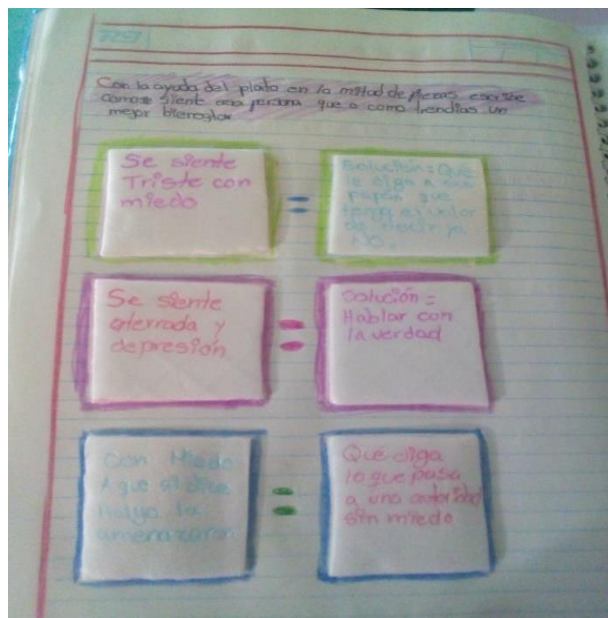 Con la ayuda del plato en la mitad de piezas escribe
como se siente esa persona que o como tendias un
mejor
Se siente
Triste con
miedo
Solución = Que
le diga a sus
papás que
tenga el valor
de decir ya
NO.
Se siente
aterrada y
depresión
Solución =
Hablar con
la verdad
Con Miedo
amenazaron
Qué diga
lo que pasa
a una autoridad
sin miedo